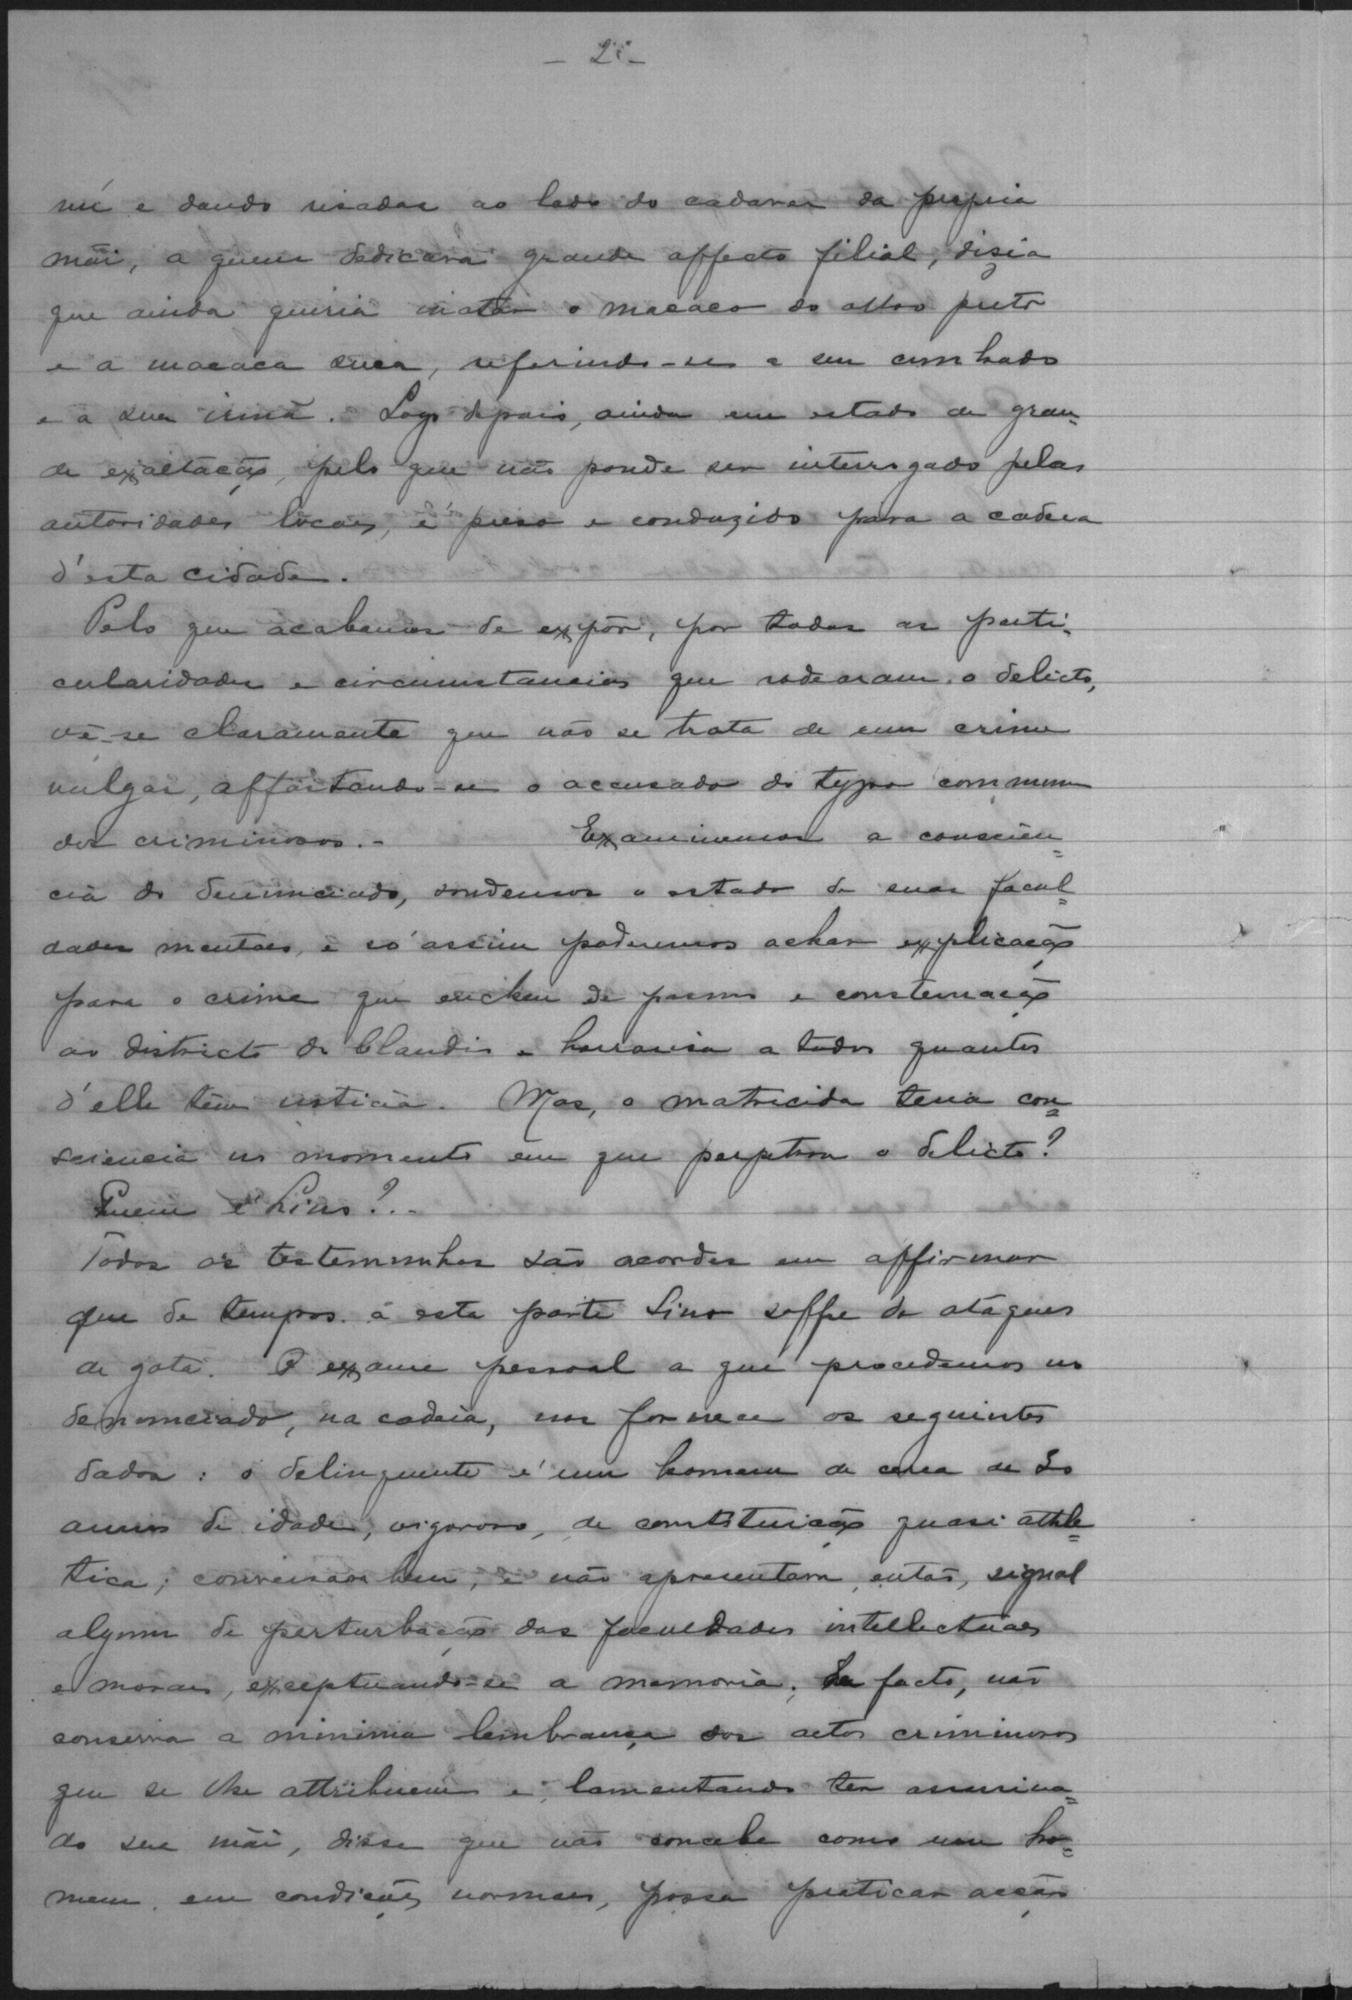 - 2 -
nú e dando risadas ao lado do cadaver da propria
mãi, a quem dedicava grande affecto filial, disia
que ainda queria matar o macaco do olho preto
e a macaca sua, referindo-se a seu cunhado
e a sua irmã. Logo depois, ainda em estado de gran-
de exaltação, pelo que não poude ser interrogado pelas
autoridades locaes, é preso e conduzido para a cadeia
d'esta cidade.
Pelo que acabamos de expôr, por todas as parti-
cularidades e circumstancias que rodearam o delicto,
vê-se claramente que não se trata de um crime
vulgar, affastando-se o accusado do typo commum
dos criminosos.- Examinemos a consciên=
cia do denunciado, sondemos o estado de suas facul=
dades mentaes, e só assim poderemos achar explicação
para o crime que encheu de pasmo e consternação
ao districto de Claudio e horrorisa a todos quantos
d'elle têm noticia. Mas, o matricida teria con=
sciencia no momento em que perpetrou o delicto?
Quem é Lino?..-
Todas as testemunhas são acordes em affirmar
que de tempos á esta parte Lino soffre de ataques
de gota. O exame pessoal a que procedemos no
denunciado, na cadeia, nos fornece os seguintes
dados: o delinquente é um homem de cerca de
annos de idade, vigoroso, de constituição quasi athle=
tica; conversava bem, e não apresentava, então, signal
algum de perturbação das faculdades intellectuaes
e moraes, exceptuando-se a memoria. De facto, não
conserva a minima lembrança dos actos criminosos
que se lhe attribuem e, lamentando ter assassina=
do sua mãi, disse que não concebe como um ho=
mem, em condições normaes, possa praticar acção